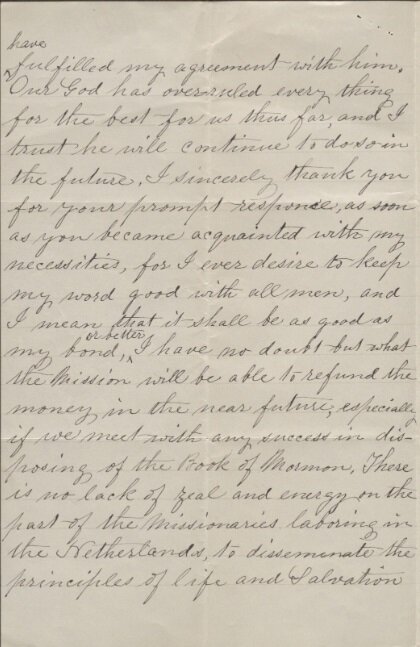 have
^fulfilled my agreement with him.
Our God has overruled every thing
for the best for us thus far, and I
trust he will continue to do so in
the future. I sincerely thank you
for your prompt responce, as soon
as you became acquainted with my
necessities, for I ever desire to keep
my word good with all men, and
I mean that it shall be as good as
or better
my bond, ^ I have no doubt but what
the Mission will be able to refund the
money in the near future, especially
if we meet with any success in dis-
posing of the Book of Mormon. There
is no lack of zeal and energy on the
part of the Missionaries laboring in
the Netherlands, to disseminate the
principles of life and Salvation